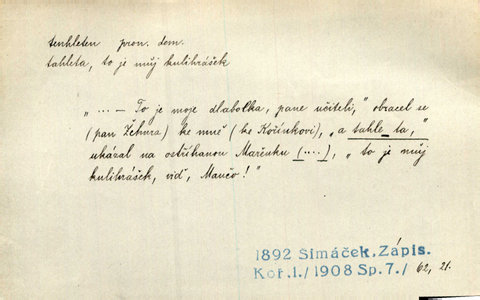 tenhleten pron. dem.
tahleta, to je můj kulihrášek
„ ... – To je moje dlabolka, pane učiteli,“ obracel se
(pan Žehura) ke mně (ke Kořínkovi), „a tahle_ta,“
ukázal na ostříhanou Mařenku (....), „to je můj
kulihrášek, viď, Mančo!“
1892 Šimáček.Zápis.
Koř.1./1908 Sp.7./ 62, 21.